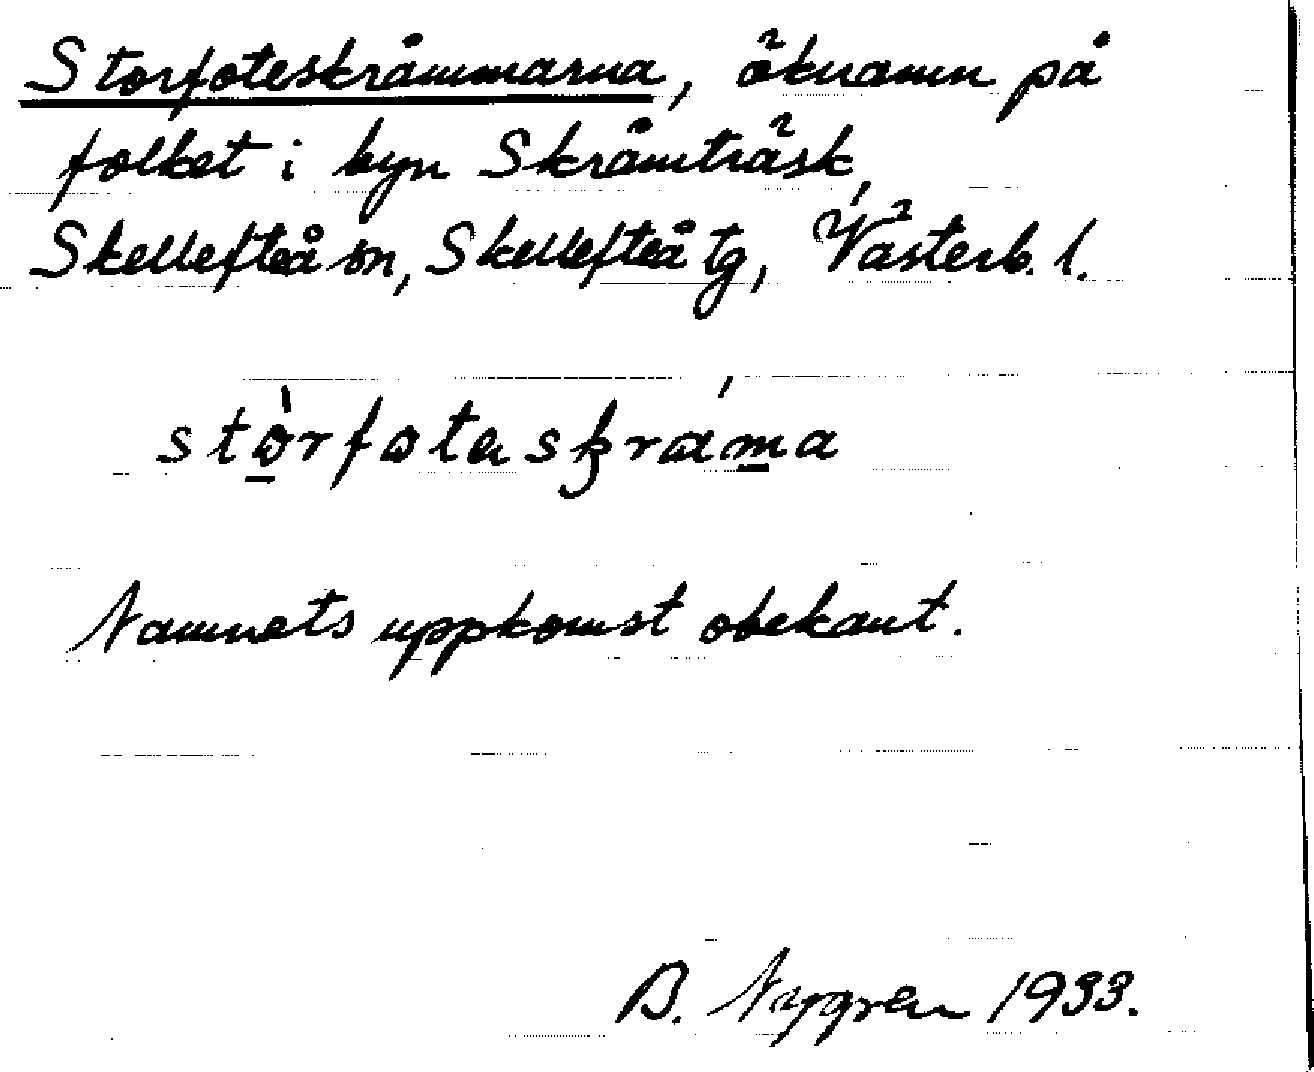 Storfoteskråmmarna, öknamn på
folket i byn Skråmträsk,
Skellefteå sn, Skellefteå tg, Västerb. l.
Namnets uppkomst obekant.
B. Nygren 1933.